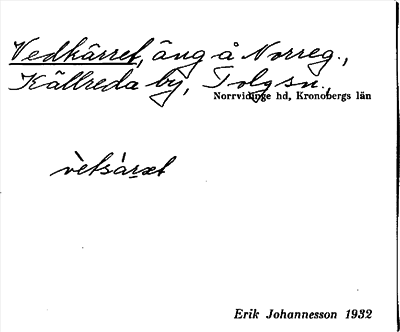 Vedkärret, äng å Norreg.,
Källreda by, Tolg sn.,
Norrvidinge hd, Kronobergs län
vètsàrꭗet
Erik Johannesson 1932